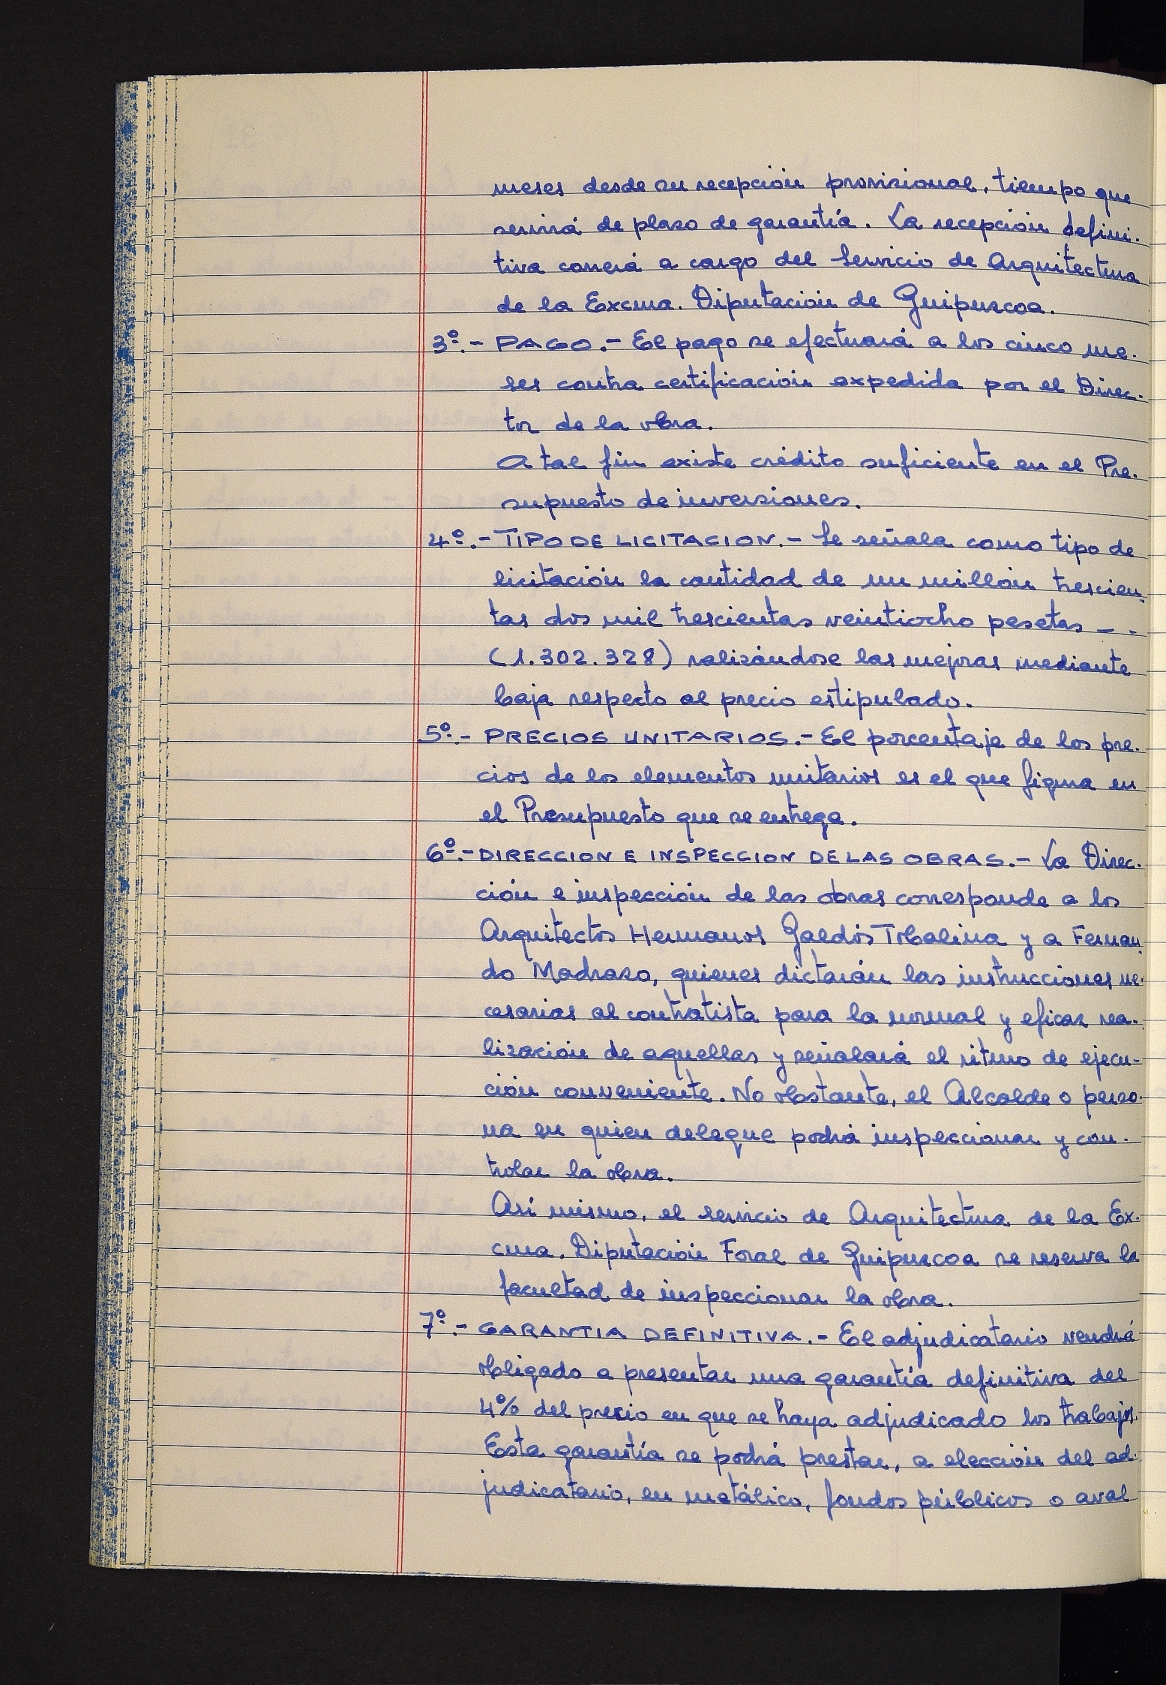 meses desde su recepción provisional, tiempo que
servirá de plazo de garantía. La recepción defini-
tiva correrá a cargo del Servicio de Arquitectura
de la Excma. Diputación de Guipuzcoa.
3º.- PAGO.- El pago se efectuará a los cinco me-
ses contra certificación expedida por el Direc-
tor de la obra.
A tal fin existe crédito suficiente en el Pre-
supuesto de inversiones.
4º.- TIPO DE LICITACION.- Se señala como tipo de
licitación la cantidad de un millón trescien-
tas dos mil trescientas veintiocho pesetas - -
(1.302.328) realizándose las mejoras mediante
baja respecto al precio estipulado.
5º.- PRECIOS UNITARIOS.- El porcentaje de los pre-
cios de los elementos unitarios es el que figura en
el Presupuesto que se entrega.
6º.- DIRECCION E INSPECCION DE LAS OBRAS.- La Direc-
ción e inspección de las obras corresponde a los
Arquitectos Hermanos Galdós Tobalina y a Fernan-
do Madrazo, quienes dictarán las instrucciones ne-
cesarias al contratista para la normal y eficaz rea-
lización de aquellas y señalará el ritmo de ejecu-
ción conveniente. No obstante, el Alcalde o perso-
na en quien delegue podrá inspeccionar y con-
trolar la obra.
Así mismo, el servicio de Arquitectura de la Ex-
cma. Diputación Foral de Guipuzcoa se reserva la
facultad de inspeccionar la obra.
7º.- GARANTIA DEFINITIVA.- El adjudicatario vendrá
obligado a presentar una garantía definitiva del
4% del precio en que se haya adjudicado los trabajos.
Esta garantía se podrá prestar, a elección del ad-
judicatario, en metálico, fondos públicos o aval